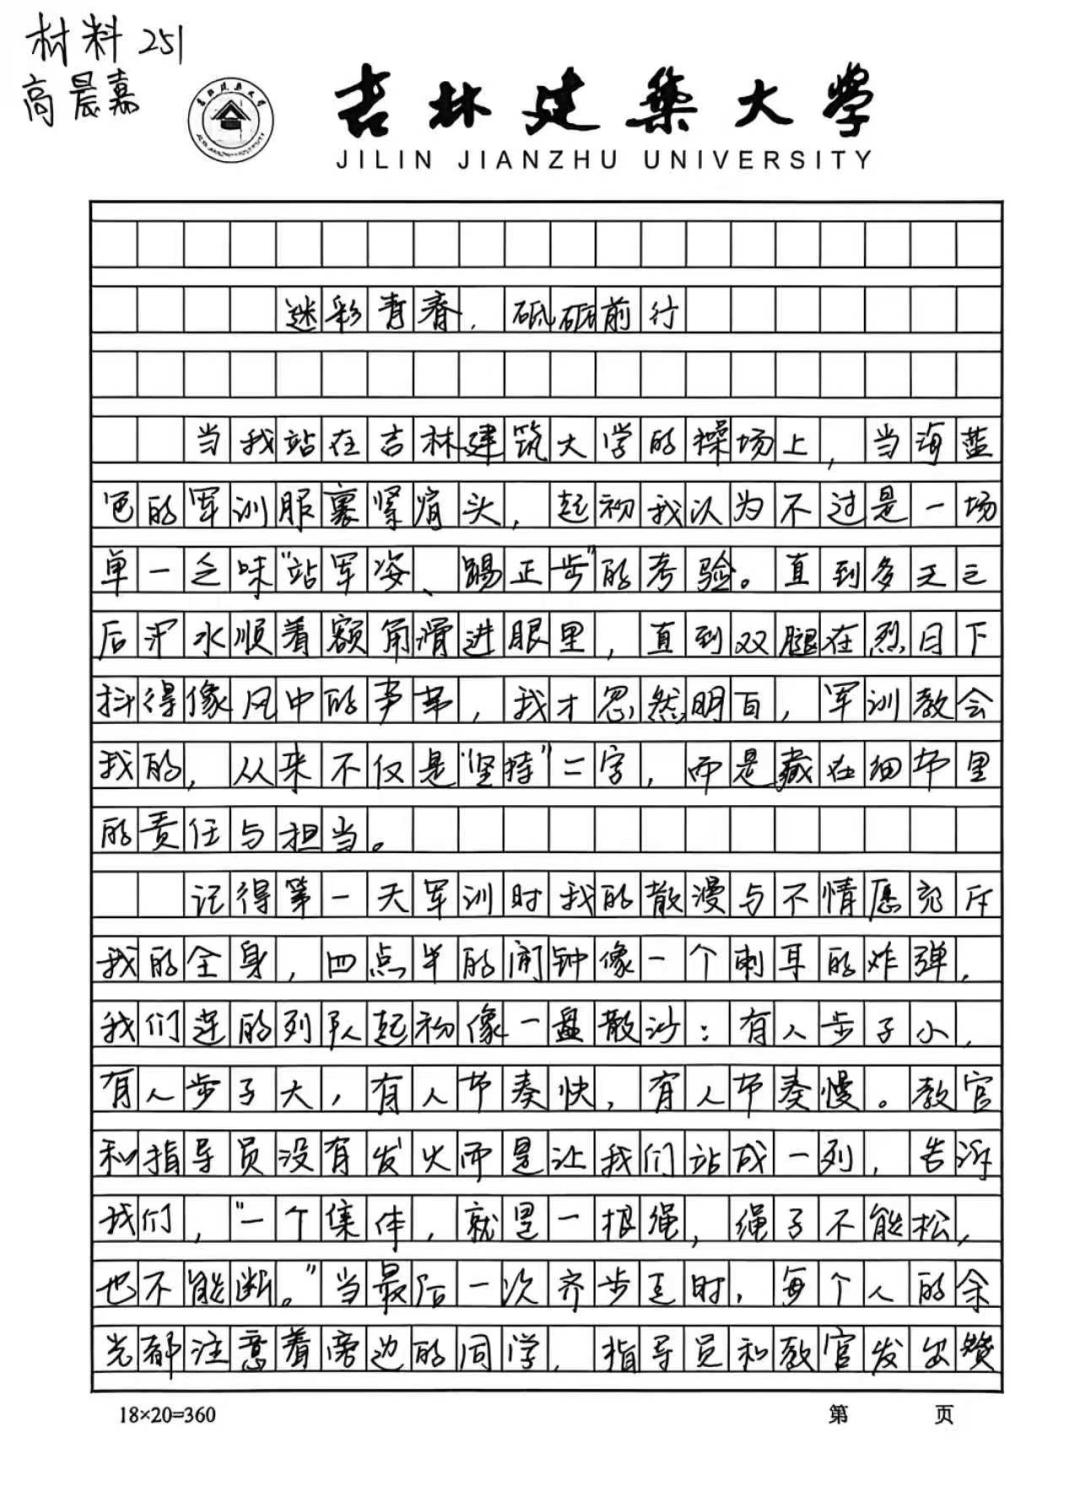 材料251
高晨嘉
吉林建築大学
JILIN JIANZHU UNIVERSITY
迷彩青春，砥砺前行
当我站在吉林建筑大学的操场上，当海蓝
色的军训服裹紧肩头，起初我认为不过是一场
单一乏味“站军姿、踢正步”的考验。直到多天之
后汗水顺着额角滑进眼里，直到双腿在烈日下
抖得像风中的芦苇，我才忽然明白，军训教会
我的，从来不仅是“坚持”二字，而是藏在细节里
的责任与担当。
记得第一天军训时我的散漫与不情愿充斥
我的全身，四点半的闹钟像一个刺耳的炸弹，
我们走的列队起初像一盘散沙：有人步子小，
有人步子大，有人节奏快，有人节奏慢。教官
和指导员没有发火而是让我们站成一列，告诉
我们，“一个集体，就是一根绳，绳子不能松，
也不能断。”当最后一次齐步走时，每个人的余
光都注意着旁边的同学，指导员和教官发出赞
18×20=360
第 页